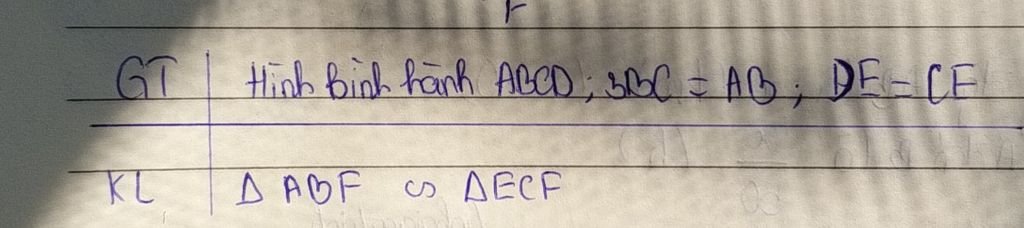 F
GT Hình bình hành ABCD; 3BC = AB; DE = CE
KL Δ ABF ∽ ΔECF